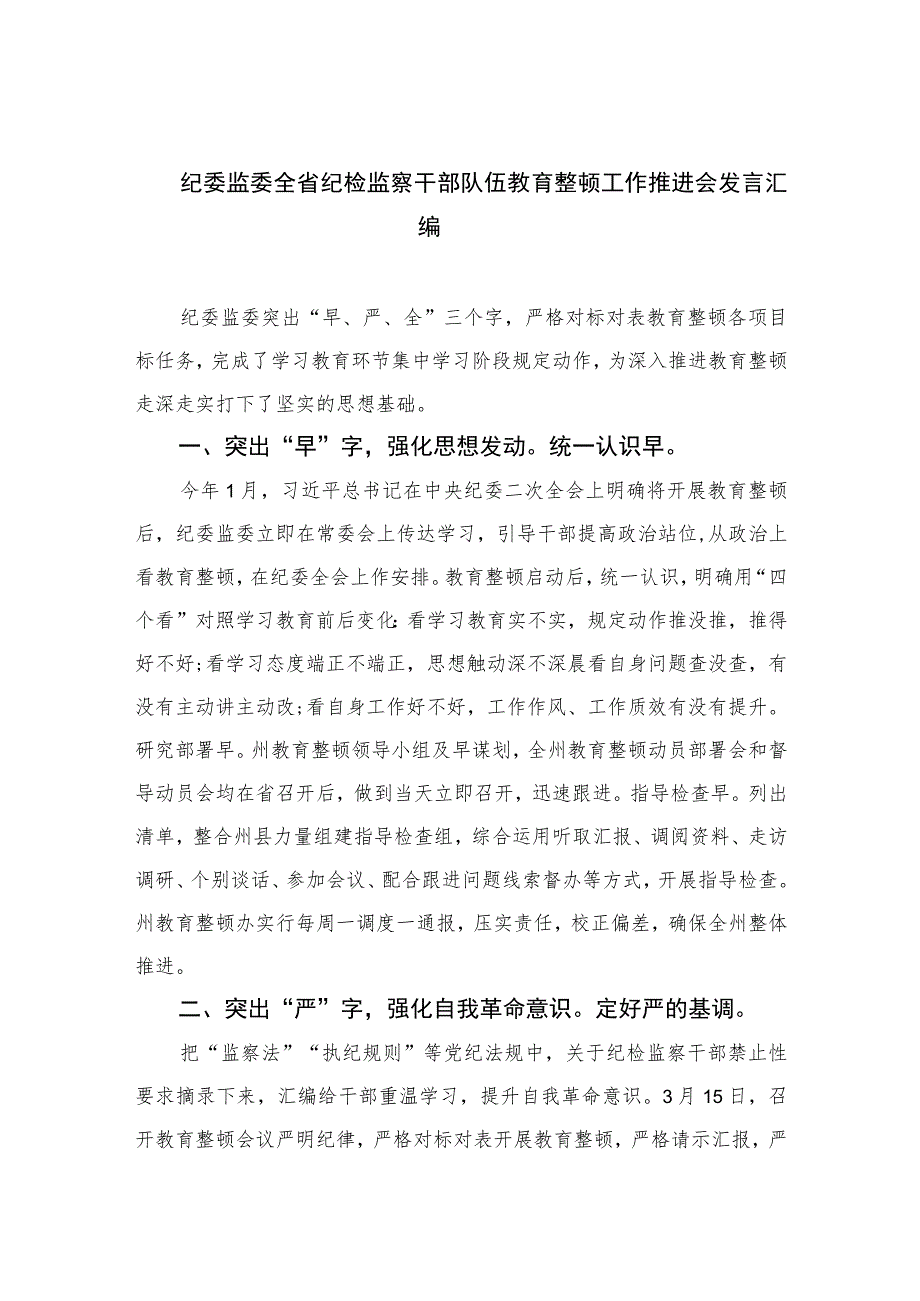 纪委监委全省纪检监察干部队伍教育整顿工作推进会发言汇
编
纪委监委突出“早、严、全”三个字，严格对标对表教育整顿各项目
标任务，完成了学习教育环节集中学习阶段规定动作，为深入推进教育整顿
走深走实打下了坚实的思想基础。
一、突出“早”字，强化思想发动。统一认识早。
今年1月，习近平总书记在中央纪委二次全会上明确将开展教育整顿
后，纪委监委立即在常委会上传达学习，引导干部提高政治站位,从政治上
看教育整顿，在纪委全会上作安排。教育整顿启动后，统一认识，明确用“四
个看”对照学习教育前后变化：看学习教育实不实，规定动作推没推，推得
好不好;看学习态度端正不端正，思想触动深不深晨看自身问题查没查，有
没有主动讲主动改;看自身工作好不好，工作作风、工作质效有没有提升。
研究部署早。州教育整顿领导小组及早谋划，全州教育整顿动员部署会和督
导动员会均在省召开后，做到当天立即召开，迅速跟进。指导检查早。列出
清单，整合州县力量组建指导检查组，综合运用听取汇报、调阅资料、走访
调研、个别谈话、参加会议、配合跟进问题线索督办等方式，开展指导检查。
州教育整顿办实行每周一调度一通报，压实责任，校正偏差，确保全州整体
推进。
二、突出“严”字，强化自我革命意识。定好严的基调。
把“监察法”“执纪规则”等党纪法规中，关于纪检监察干部禁止性
要求摘录下来，汇编给干部重温学习，提升自我革命意识。3月15日，召
开教育整顿会议严明纪律，严格对标对表开展教育整顿，严格请示汇报，严